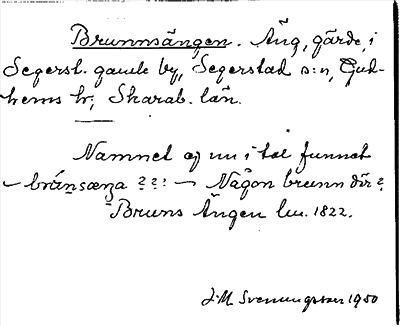 Brunnsängen. Äng, gärde, i
Segerst. gamle by, Segerstad s:n, Gud-
hems hr; Skarab. län.
Namnet ej nu i tal funnet
– brɷ́nsæŋa ??: – Någon brunn där?
Bruns Ängen lm. 1822.
J. M. Svenungsson 1950